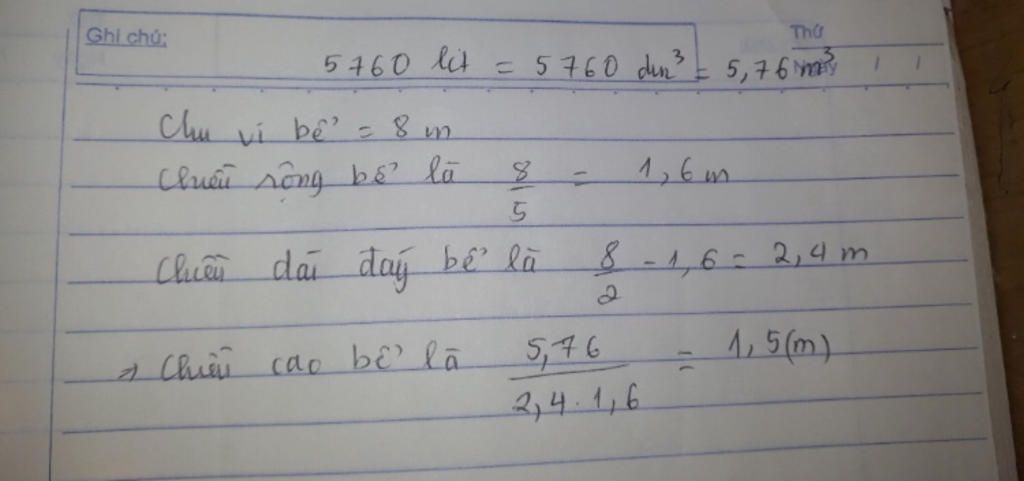 Ghi chú:
Thứ
Ngày
5760 lit = 5760 dm³ = 5,76 m³
Chu vi bể = 8 m
Chiều rộng bể là 8/5 = 1,6 m
Chiều dài đáy bể là 8/2 - 1,6 = 2,4 m
⇒ Chiều cao bể là 5,76/2,4 . 1,6 = 1,5 (m)